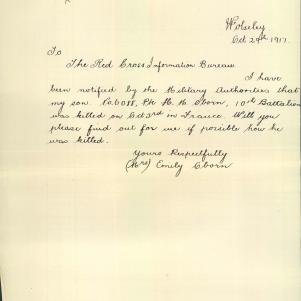 Wolseley
Oct 29th 1917.
To
The Red Cross Information Bureau
I have
been notified by the Military Authorities that
my son Pte H. H. Oborn, 10th Battalion
was killed on Oct 3rd in France. Will you
please find out for me if possible how he
was killed.
Yours Respectfully
(Mrs) Emily Oborn